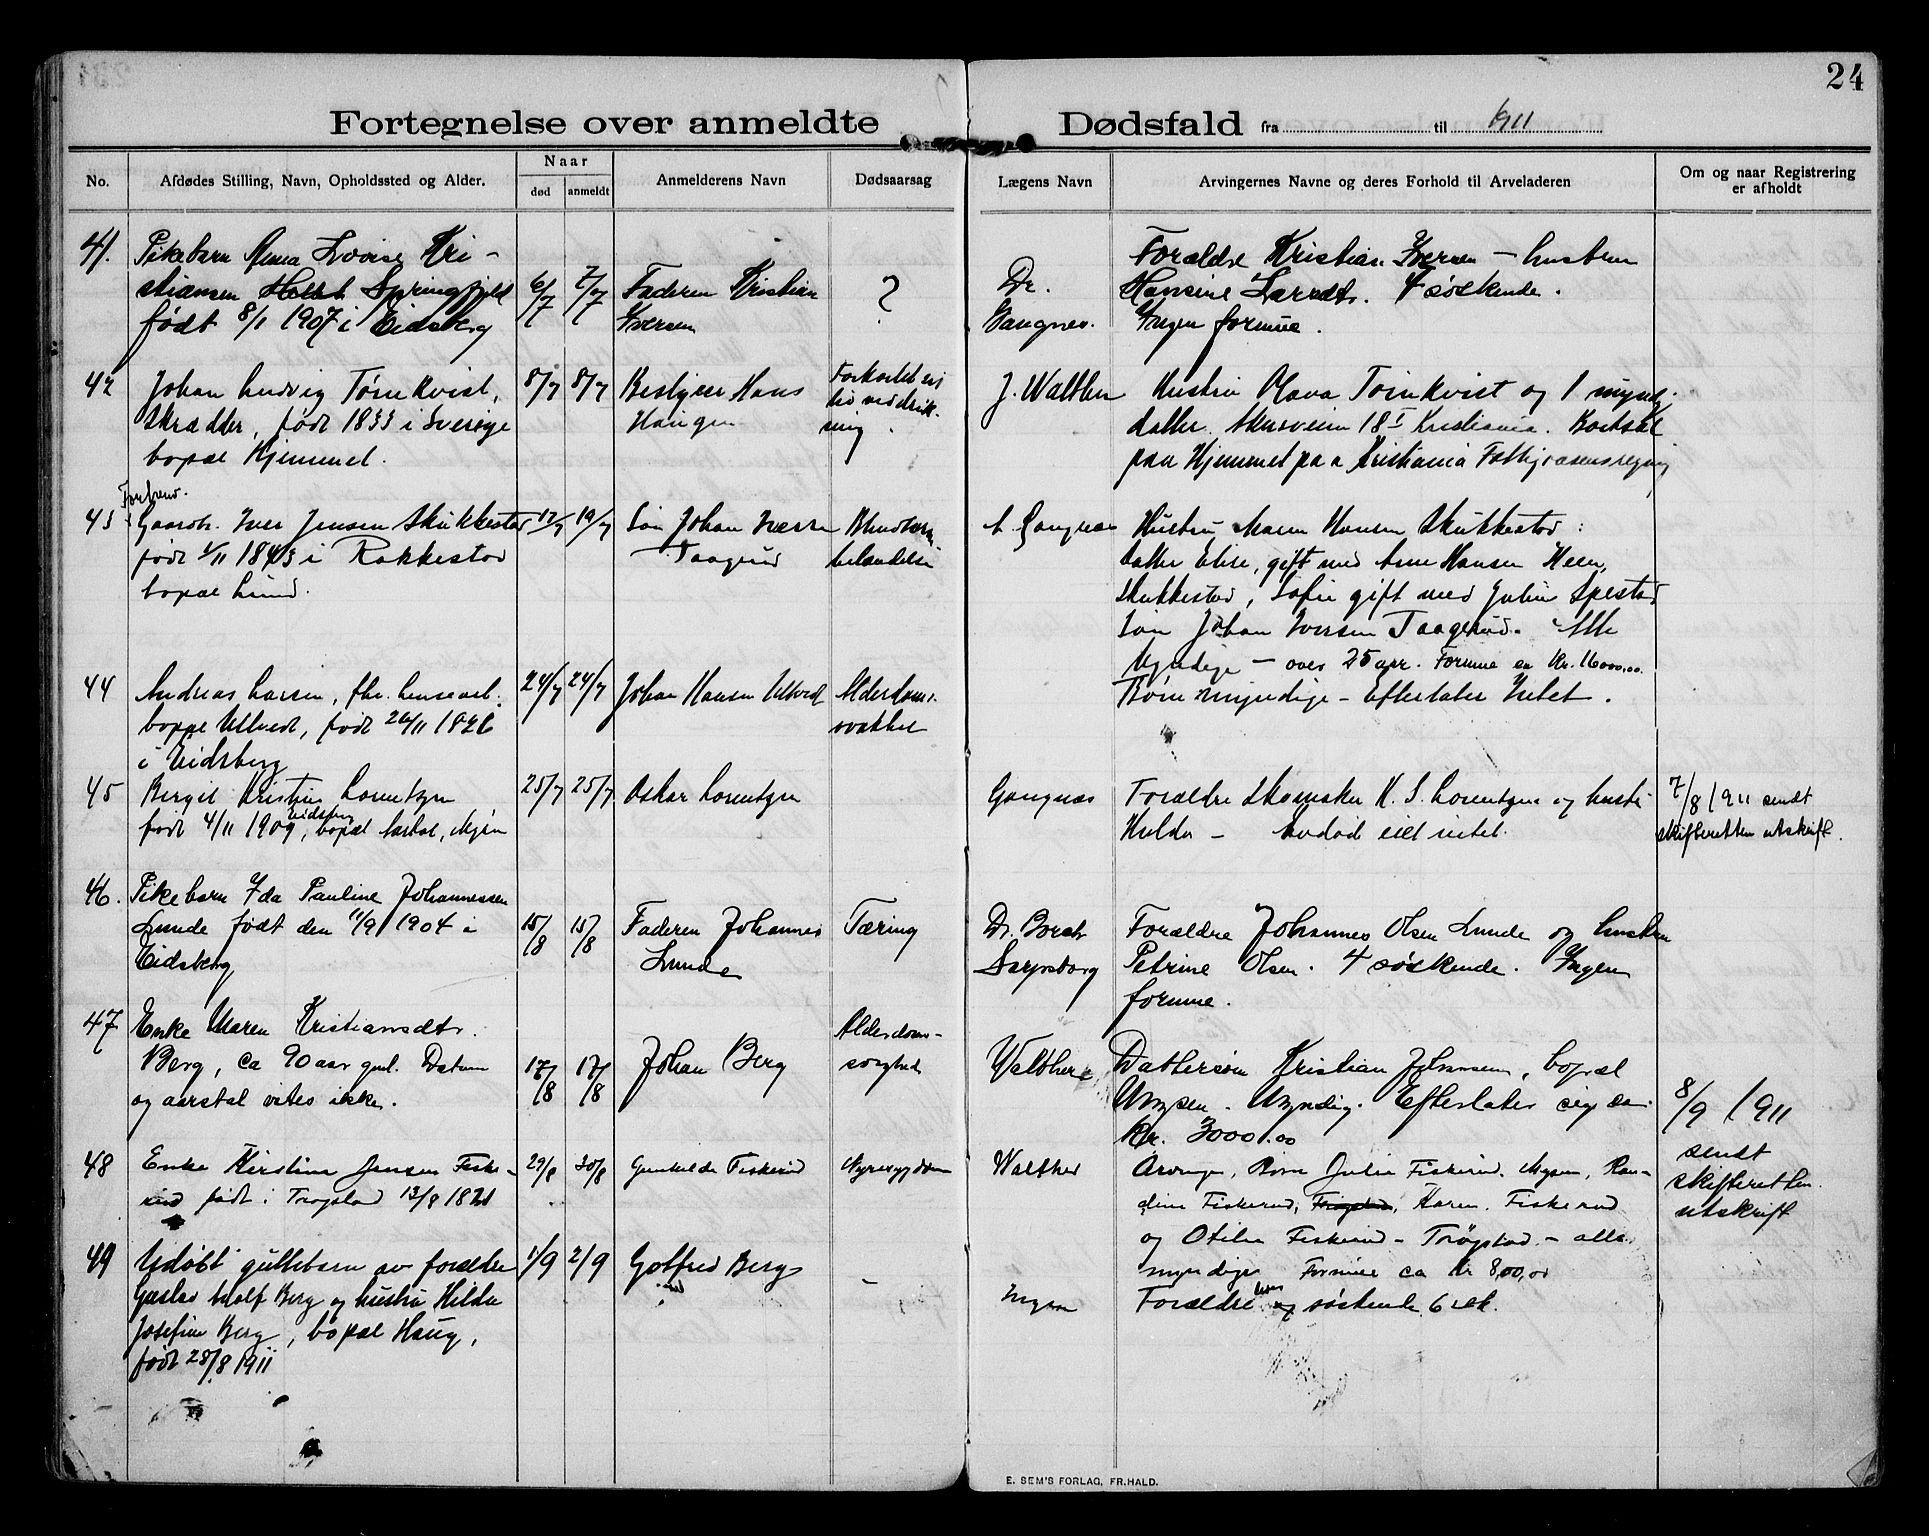 24
Fortegnelse over anmeldte Dødsfald fra til 1911
No.
Afdødes Stilling, Navn, Opholdssted og Alder.
Naar
død anmeldt
Anmelderens Navn
Dødsaarsag
Lægens Navn
Arvingernes Navne og deres Forhold til Arveladeren
Om og naar Registrering
er afholdt
41.
Pikebarn Anna Lovise Kri-
stiansen Springfjeld
født 8/1 1907 i Eidsberg
6/7
7/7
Faderen Kristian
Iversen
?
Dr.
Gangnes.
Forældre Kristian Iversen - hustru
Hansine Larsdtr. 4 søskende.
Ingen formue.
42
Johan Ludvig Tørnkvist,
Skrædder, født 1833 i Sverige
bopæl Hjemmet.
8/7
8/7
Bestyrer Hans
Haugen
J. Walther
Hustru Olava Tørnkvist og 1 myndig
datter. 18 I Kristiania. Bortsat
paa Hjemmet paa Kristiania Fattigvæsens regning
43
Forhenv.
Gaardbr. Iver Jensen Skukkestad
født 5/11 1843 i Rakkestad
bopæl Lund.
17/7
19/7
Søn Johan Iversen
Taagerud
Blindtarm
betændelse
A. Gangnæs
Hustru Maren Hansen Skukkestad:
datter Elise, gift med Arne Hansen Heen,
Skukkestad, Sofie gift med Julius Spestad
Søn Johan Iversen Taagerud. Alle
Myndige - over 25 aar. Formue ca Kr. 16000.00.
44
Andreas Larsen, fhv.
boppel Ullved, født 24/11 1826
i Eidsberg
24/7
24/7
Johan Hansen Ullved
Alderdoms-
svakhet
Børn myndige - Efterlater Intet.
45
Bergit Kristine Lorentzen
født 4/11 1909, Eidsberg, bopæl Mysen
25/7
25/7
Oskar Lorentzen
Gangnæs
Forældre Skomaker K. S. Lorentzen og hustru
Hulda - Avdød eiet intet.
7/8 1911 sendt
skifteretten utskrift.
46.
Pikebarn Ida Pauline Johannessen
Lunde født den 11/9 1904 i
Eidsberg
15/8
15/8
Faderen Johannes
Lunde
Tæring
Dr. Borch
Sarpsborg
Forældre Johannes Olsen Lunde og hustru
Petrine Olsen. 4 søskende. Ingen
formue.
47
Enke Maren Kristiansdtr.
Berg, ca 90 aar gml. Datum
og aarstal vites ikke.
17/8
17/8
Johan Berg
Alderdoms-
svaghed
Walther
Dattersøn Kristian Johansen, bopæl
Mysen. Myndig. Efterlater sig ca.
kr. 3000.00
8/9 1911
sendt
skifteretten
utskrift
48
Enke Kirstine Jensen Fiske-
rud født i Trøgstad 13/8 1821
29/8
30/8
Gunhilde Fiskerud
Nyresygdom
Walther
Arvinger, Børn Julie Fiskerud. Mysen, Ran-
dine Fiskerud, Trøgstad, Karen. Fiskerud
og Otilie Fiskerud - Trøgstad - alle
myndige Formue ca Kr 800,00
49
Udøbt guttebarn av forældre
Gustav Adolf Berg og hustru Hilda
Josefine Berg, bopæl Haug,
født 28/8 1911
1/9
2/9
Gotfred Berg
-
Ingen
Forældre og søskende 6 stk.
E. SEM'S FORLAG, FR.HALD.